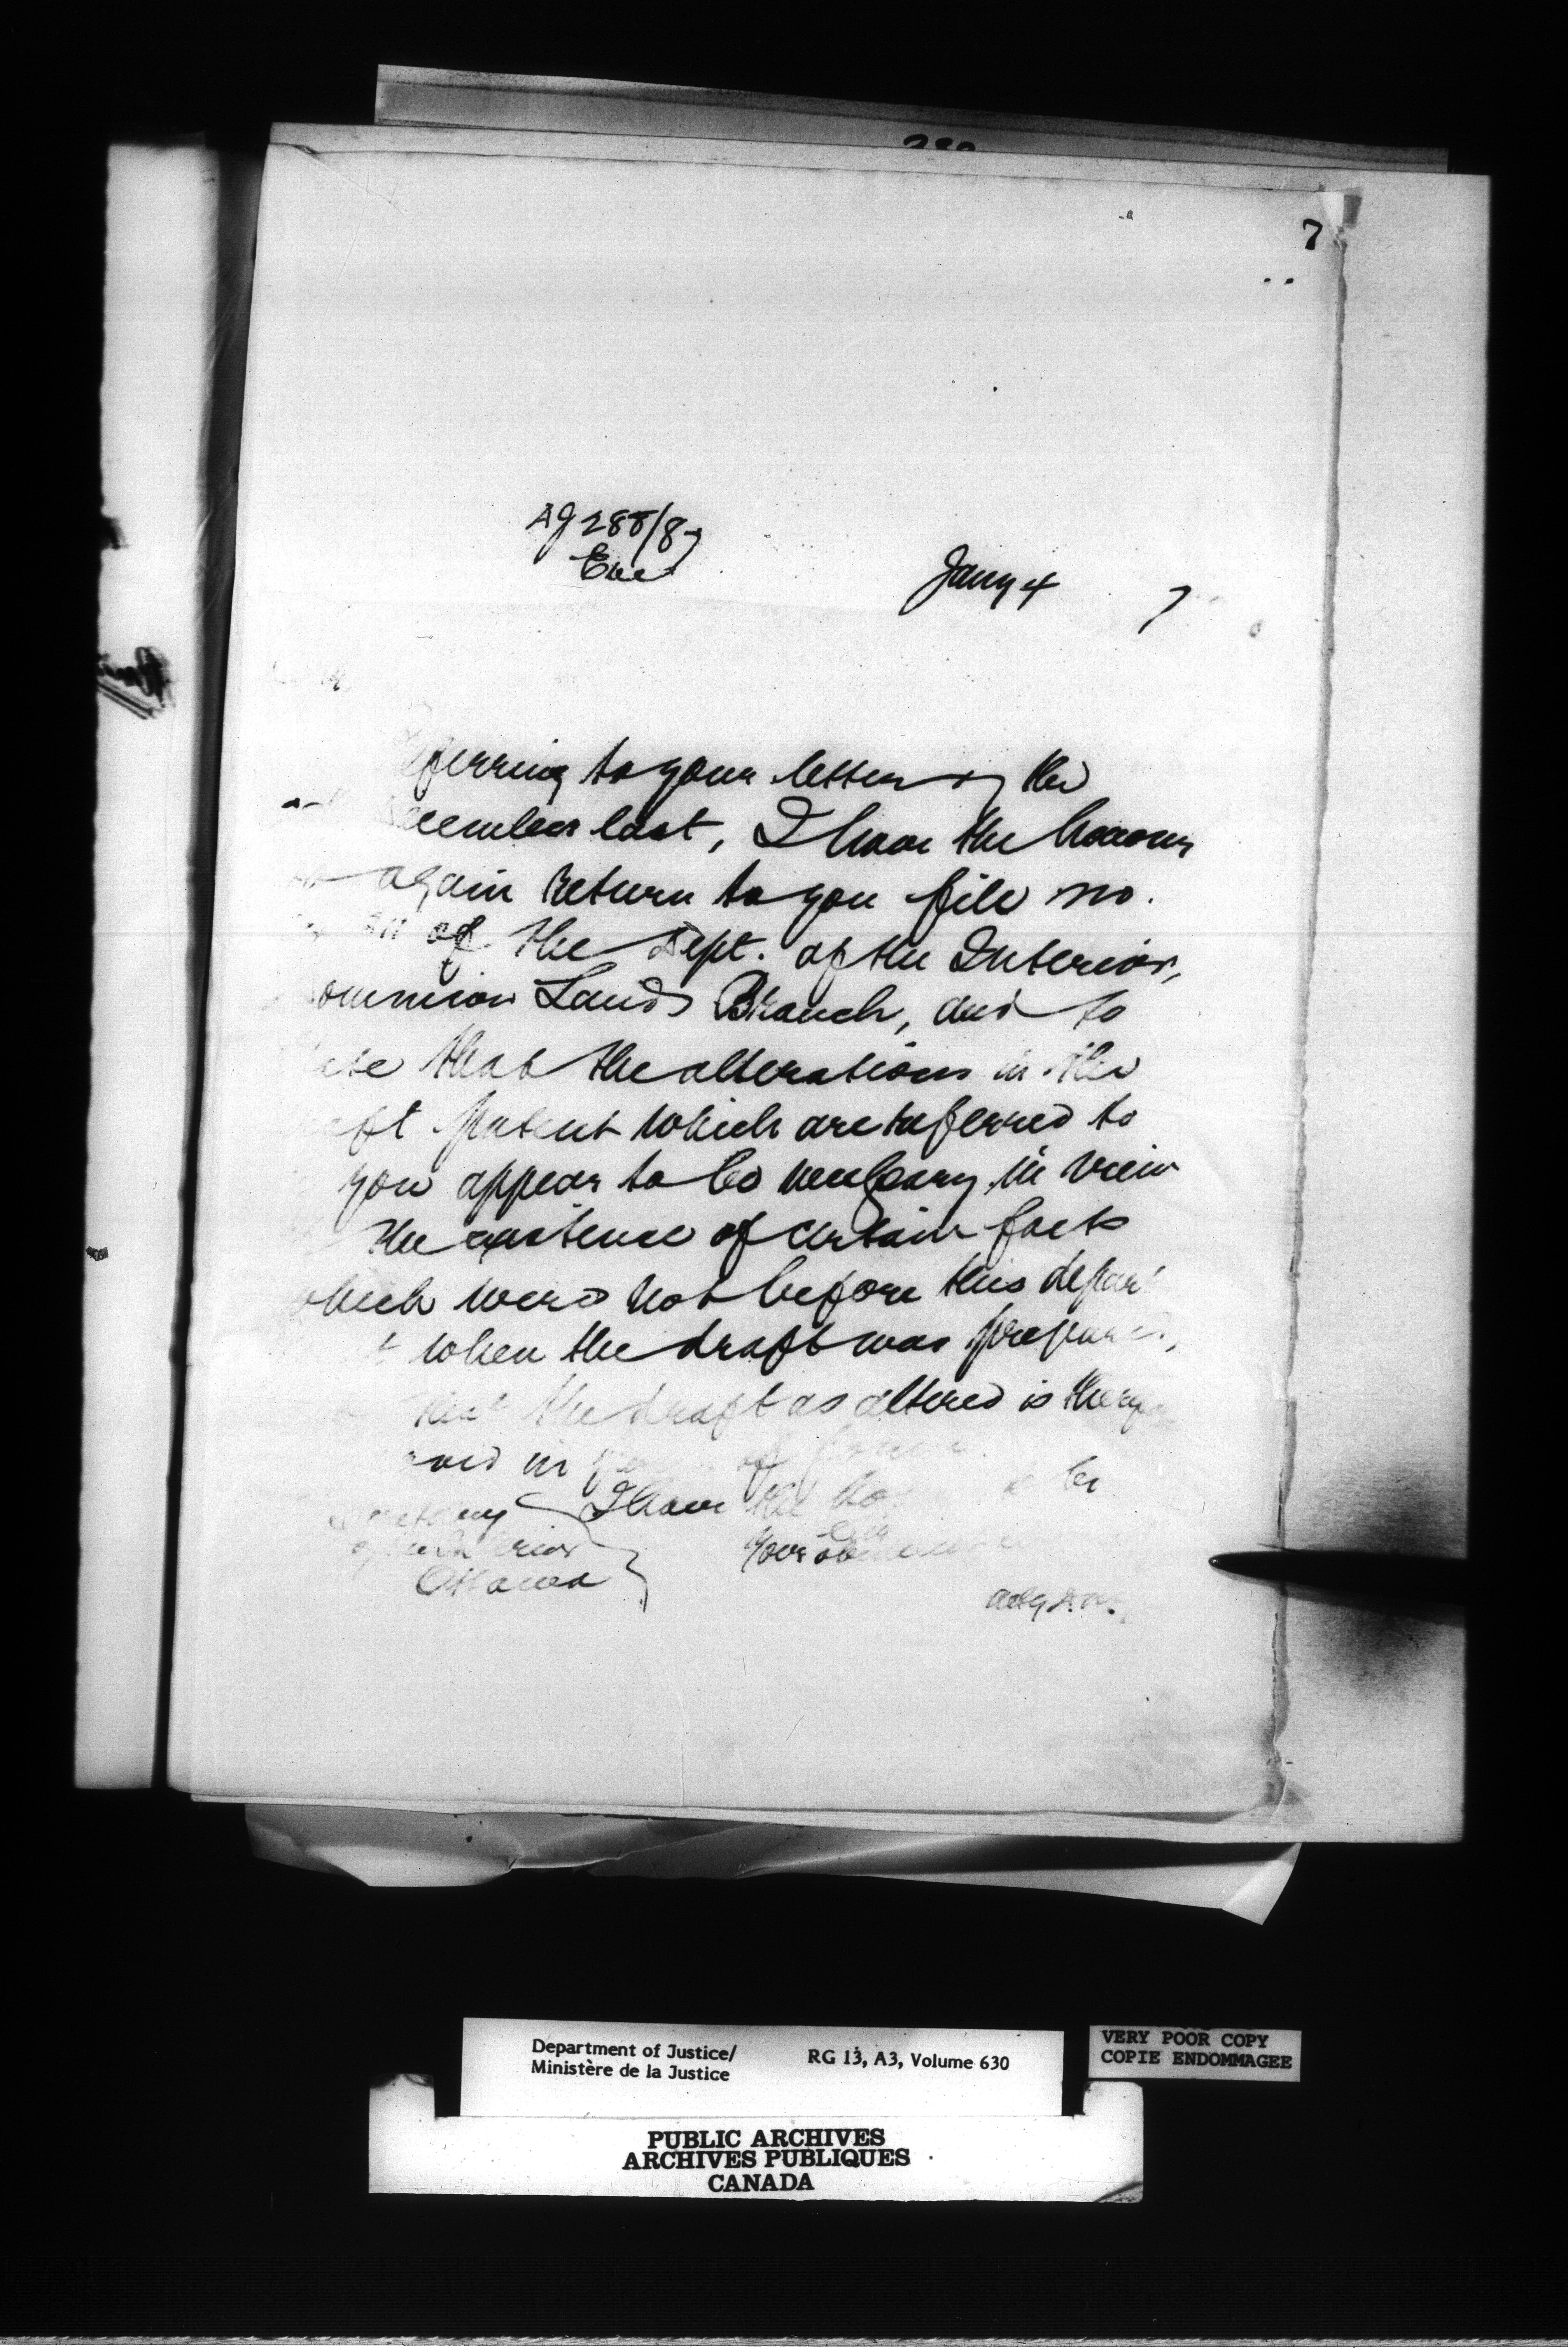 7
AG 288/87
Enc
Jany 4 7
eferring to your letter of the
ecember last, I have the honour
again return to you file no.
of the Dept. of the Interior,
ominion Lands Branch, and to
that the alterations in the
aft patent which are referred to
you appear to be necessary in view
the existence of certain facts
which were not before this depart
when the draft was prepared,
that the draft as altered is
in
I have the be
Ottawa
Your
Department of Justice/
Ministère de la Justice
RG 13, A3, Volume 630
VERY POOR COPY
COPIE ENDOMMAGEE
PUBLIC ARCHIVES
ARCHIVES PUBLIQUES
CANADA